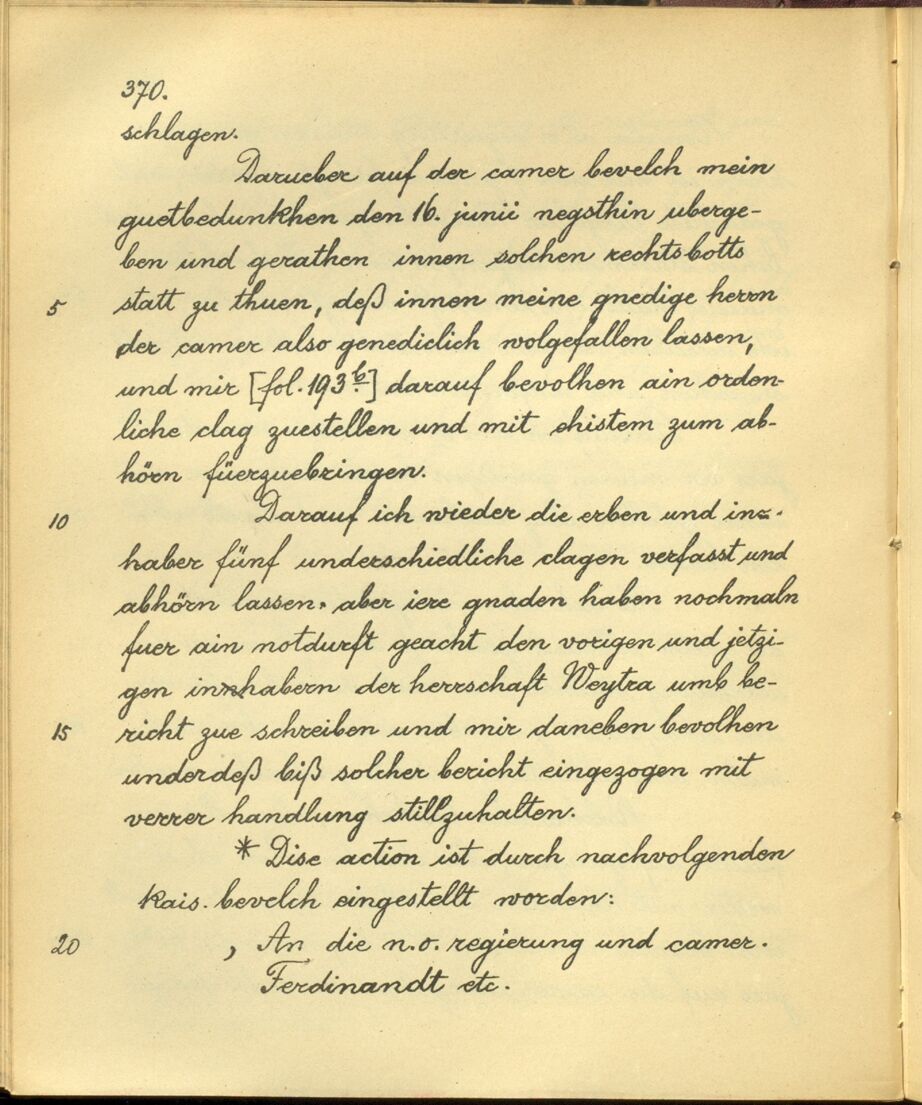 370.
schlagen.
Darueber auf der camer bevelch mein
guetbedunkhen den 16. junii negsthin uberge-
ben und gerathen innen solchen rechtsbotts
5 statt zu thuen, deß innen meine gnedige herrn
der camer also genediclich wolgefallen lassen,
und mir [fol. 193 b.] darauf bevolhen ain orden-
liche clag zuestellen und mit ehistem zum ab-
hörn füerzuebringen.
10 Darauf ich wieder die erben und in-
haber fünf underschiedliche clagen verfasst und
abhörn lassen. aber iere gnaden haben nochmaln
fuer ain notdurft geacht den vorigen und jetzi-
gen inhabern der herrschaft Weytra umb be-
15 richt zue schreiben und mir daneben bevolhen
underdeß biß solcher bericht eingezogen mit
verrer handlung stillzuhalten.
* Dise action ist durch nachvolgenden
kais. bevelch eingestellt worden:
20 , An die n.o. regierung und camer.
Ferdinandt etc.